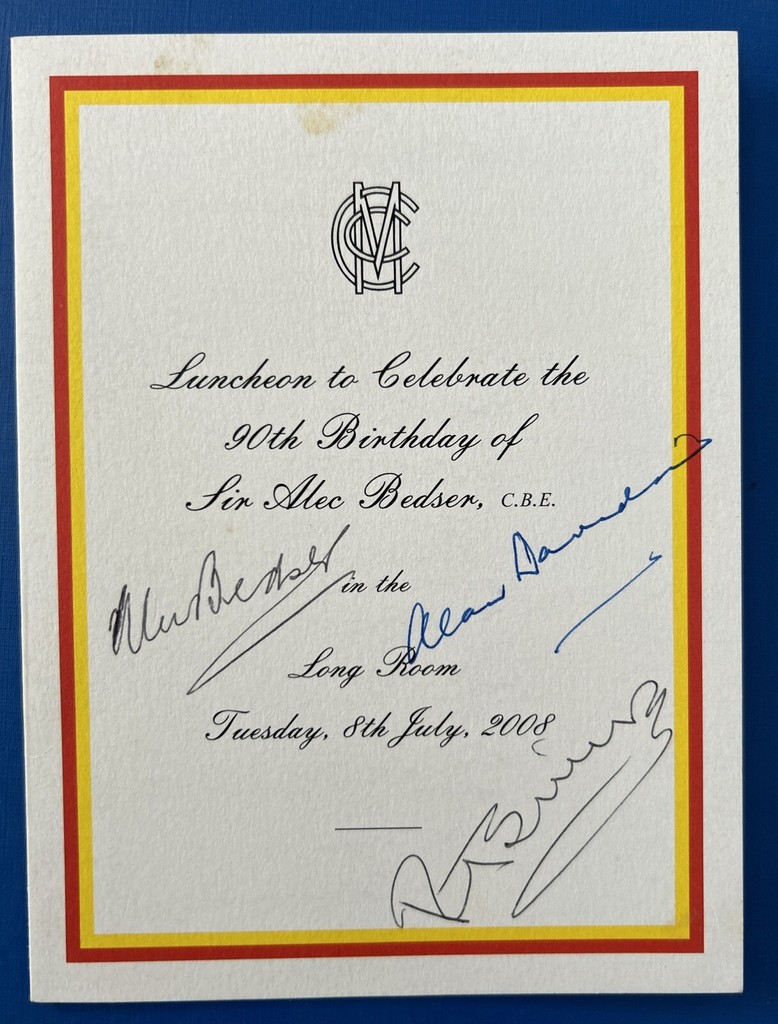 MCC
Luncheon to Celebrate the
90th Birthday of
Sir Alec Bedser, C.B.E.
Alec Bedser
in the
Alan Davidson
Long Room
Tuesday, 8th July, 2008